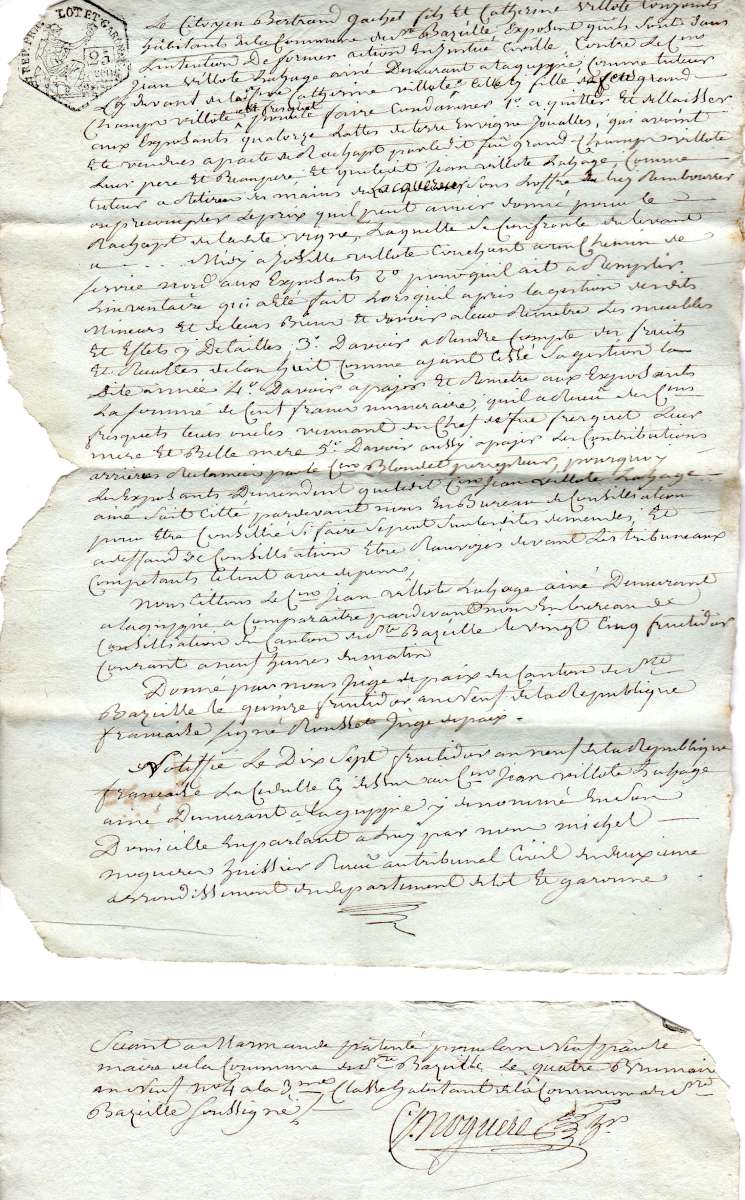 REP. FRE. LOT ET GARONNE
25
Le Citoyen Bertrand Gachet fils Et Catherine villote Conjoints
habitants de la Commune de Ste Bazeille Exposent quils sont dans
Lintention De former action En Justice Civille Contre Le Cen
Jean villote Lahage ainé Demurant a lagupye Comme tuteur
Cy devant de Catherine villote fille de feu grand
Champ villote pour le faire Condamner 1o a quitter Et dellaisser
aux Exposants quatorze Lattes de terre En vigne Joualles, qui avoint
Eté vendues a pacte de Rachapt par ledit feu grand Champ villote
Leur pere Et Beaupere Et que ledit Jean villote Lahage, Comme
tuteur a Retirer des mains de Lacquereur sous Loffre de luy Rembourser
ou precompter Le prix quil peut avoir donné pour le
Rachapt de ladite vigne, Laquelle se Confronte du levant
a ..... Midy a Joseph villote Couchant a un Chemin de
service nord aux Exposants 2o pour quil ait a Remplir
Linventaire qui a Eté fait Lorsquil a pris la gestion desdits
Mineurs Et de leurs Biens Et davoir a leur Remetre Les meubles
Et Effets y Detaillés, 3o Davoir a Rendre Compte des fruits
Et Recoltes de lan huit Comme ayant Cessé sa gestion la
Dite année 4o Davoir a payer Et Remetre aux Exposants
La somme de Cent francs numeraire, quil a Recu des Cens
fresquets leurs oncles venant du Chef de fue fresquet Leur
mere Et Belle mere 5o Davoir aussy a payer Les Contributions
arrierés Reclamées par le Cen Blondet percepteur, pourquoy
Les Exposants Demandent que ledit Cen Jean villote Lahage
ainé soit Cité pardevant nous En Bureau de Consilliation
pour Etre Consillié si faire se peut sur lesdites demandes, Et
a deffaud de Consilliation Etre Ranvoyés devant Les tribuneaux
Competants le tout avec depens,
Nous Cittons Le Cen Jean villote Lahage ainé Demurant
a lagupye a Comparaitre pardevant nous En bureau de
Consilliation du Canton de Ste Bazeille le vingt Cinq fructidor
Courant a neuf heures du matin
Donné par nous Juge de paix du Canton de Ste
Bazeille le quinze fructidor an neuf de la Republique
francaise signé Rousset Juge de paix.
Notiffié Le Dix Sept fructidor an neuf de la Republique
francaise La Cedulle Cy dessus au Cen Jean villote Lahage
ainé Demurant a Lagupye y denommé En son
Domicille En parlant a Luy par nous michel
noguere huissier Recu au tribunal Civil du deuxieme
arrondissement du departement de lot Et garonne
Seant a Marmande patenté pour lan Neuf par le
maire de la Commune de Ste Bazeille Le quatre Brumaire
an Neuf No 4 a la 3me Classe habitant de la Commune de Ste
Bazeille soussigné
Noguere